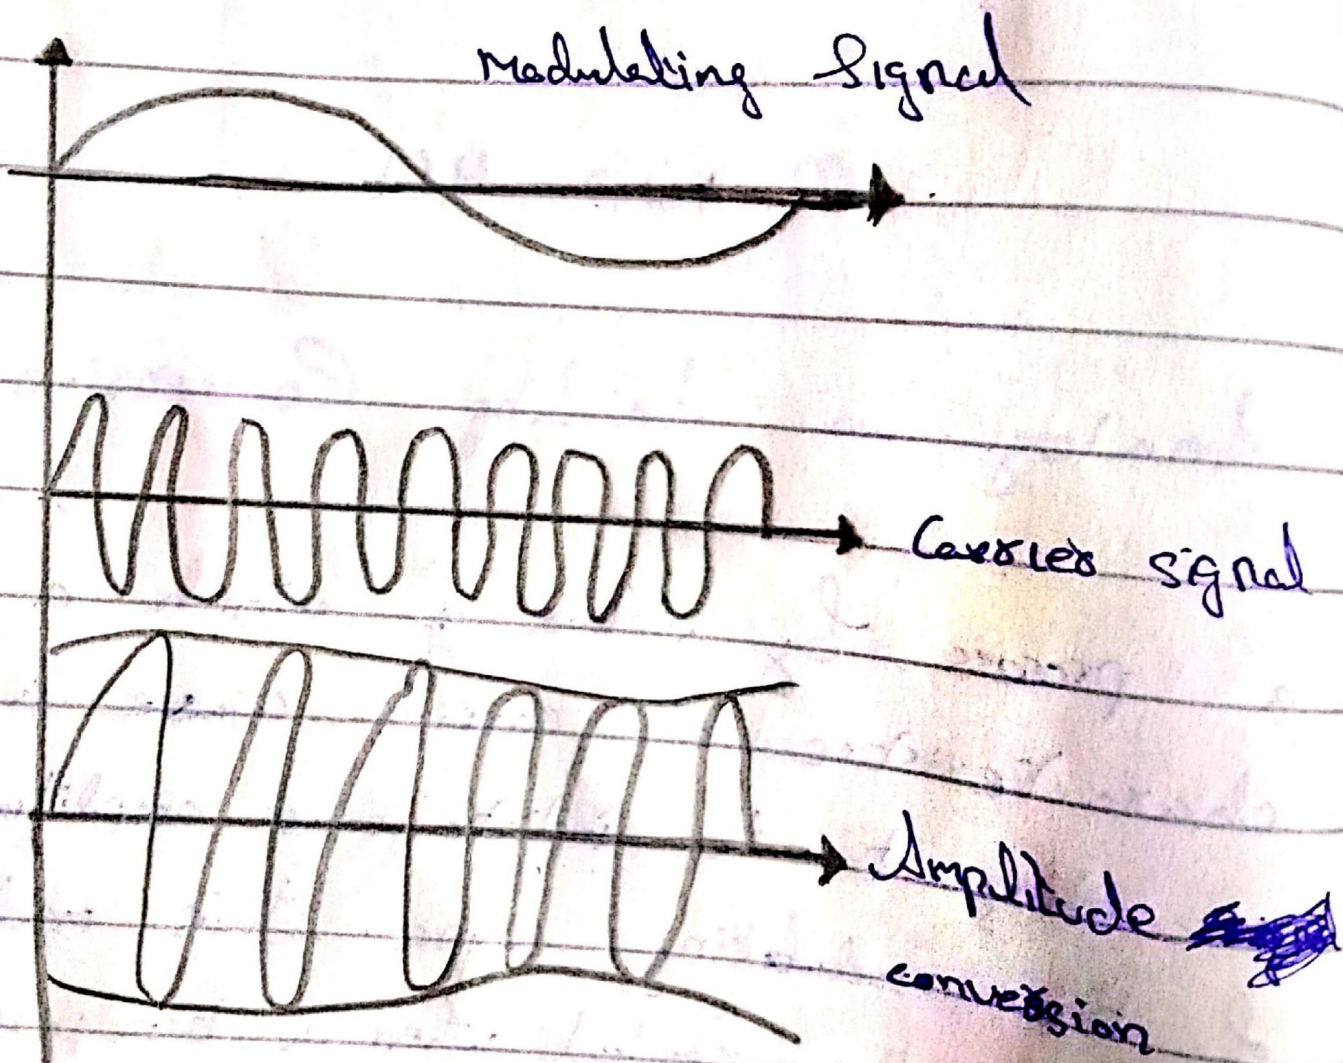 Modulating Signal
Carrier signal
Amplitude
conversion